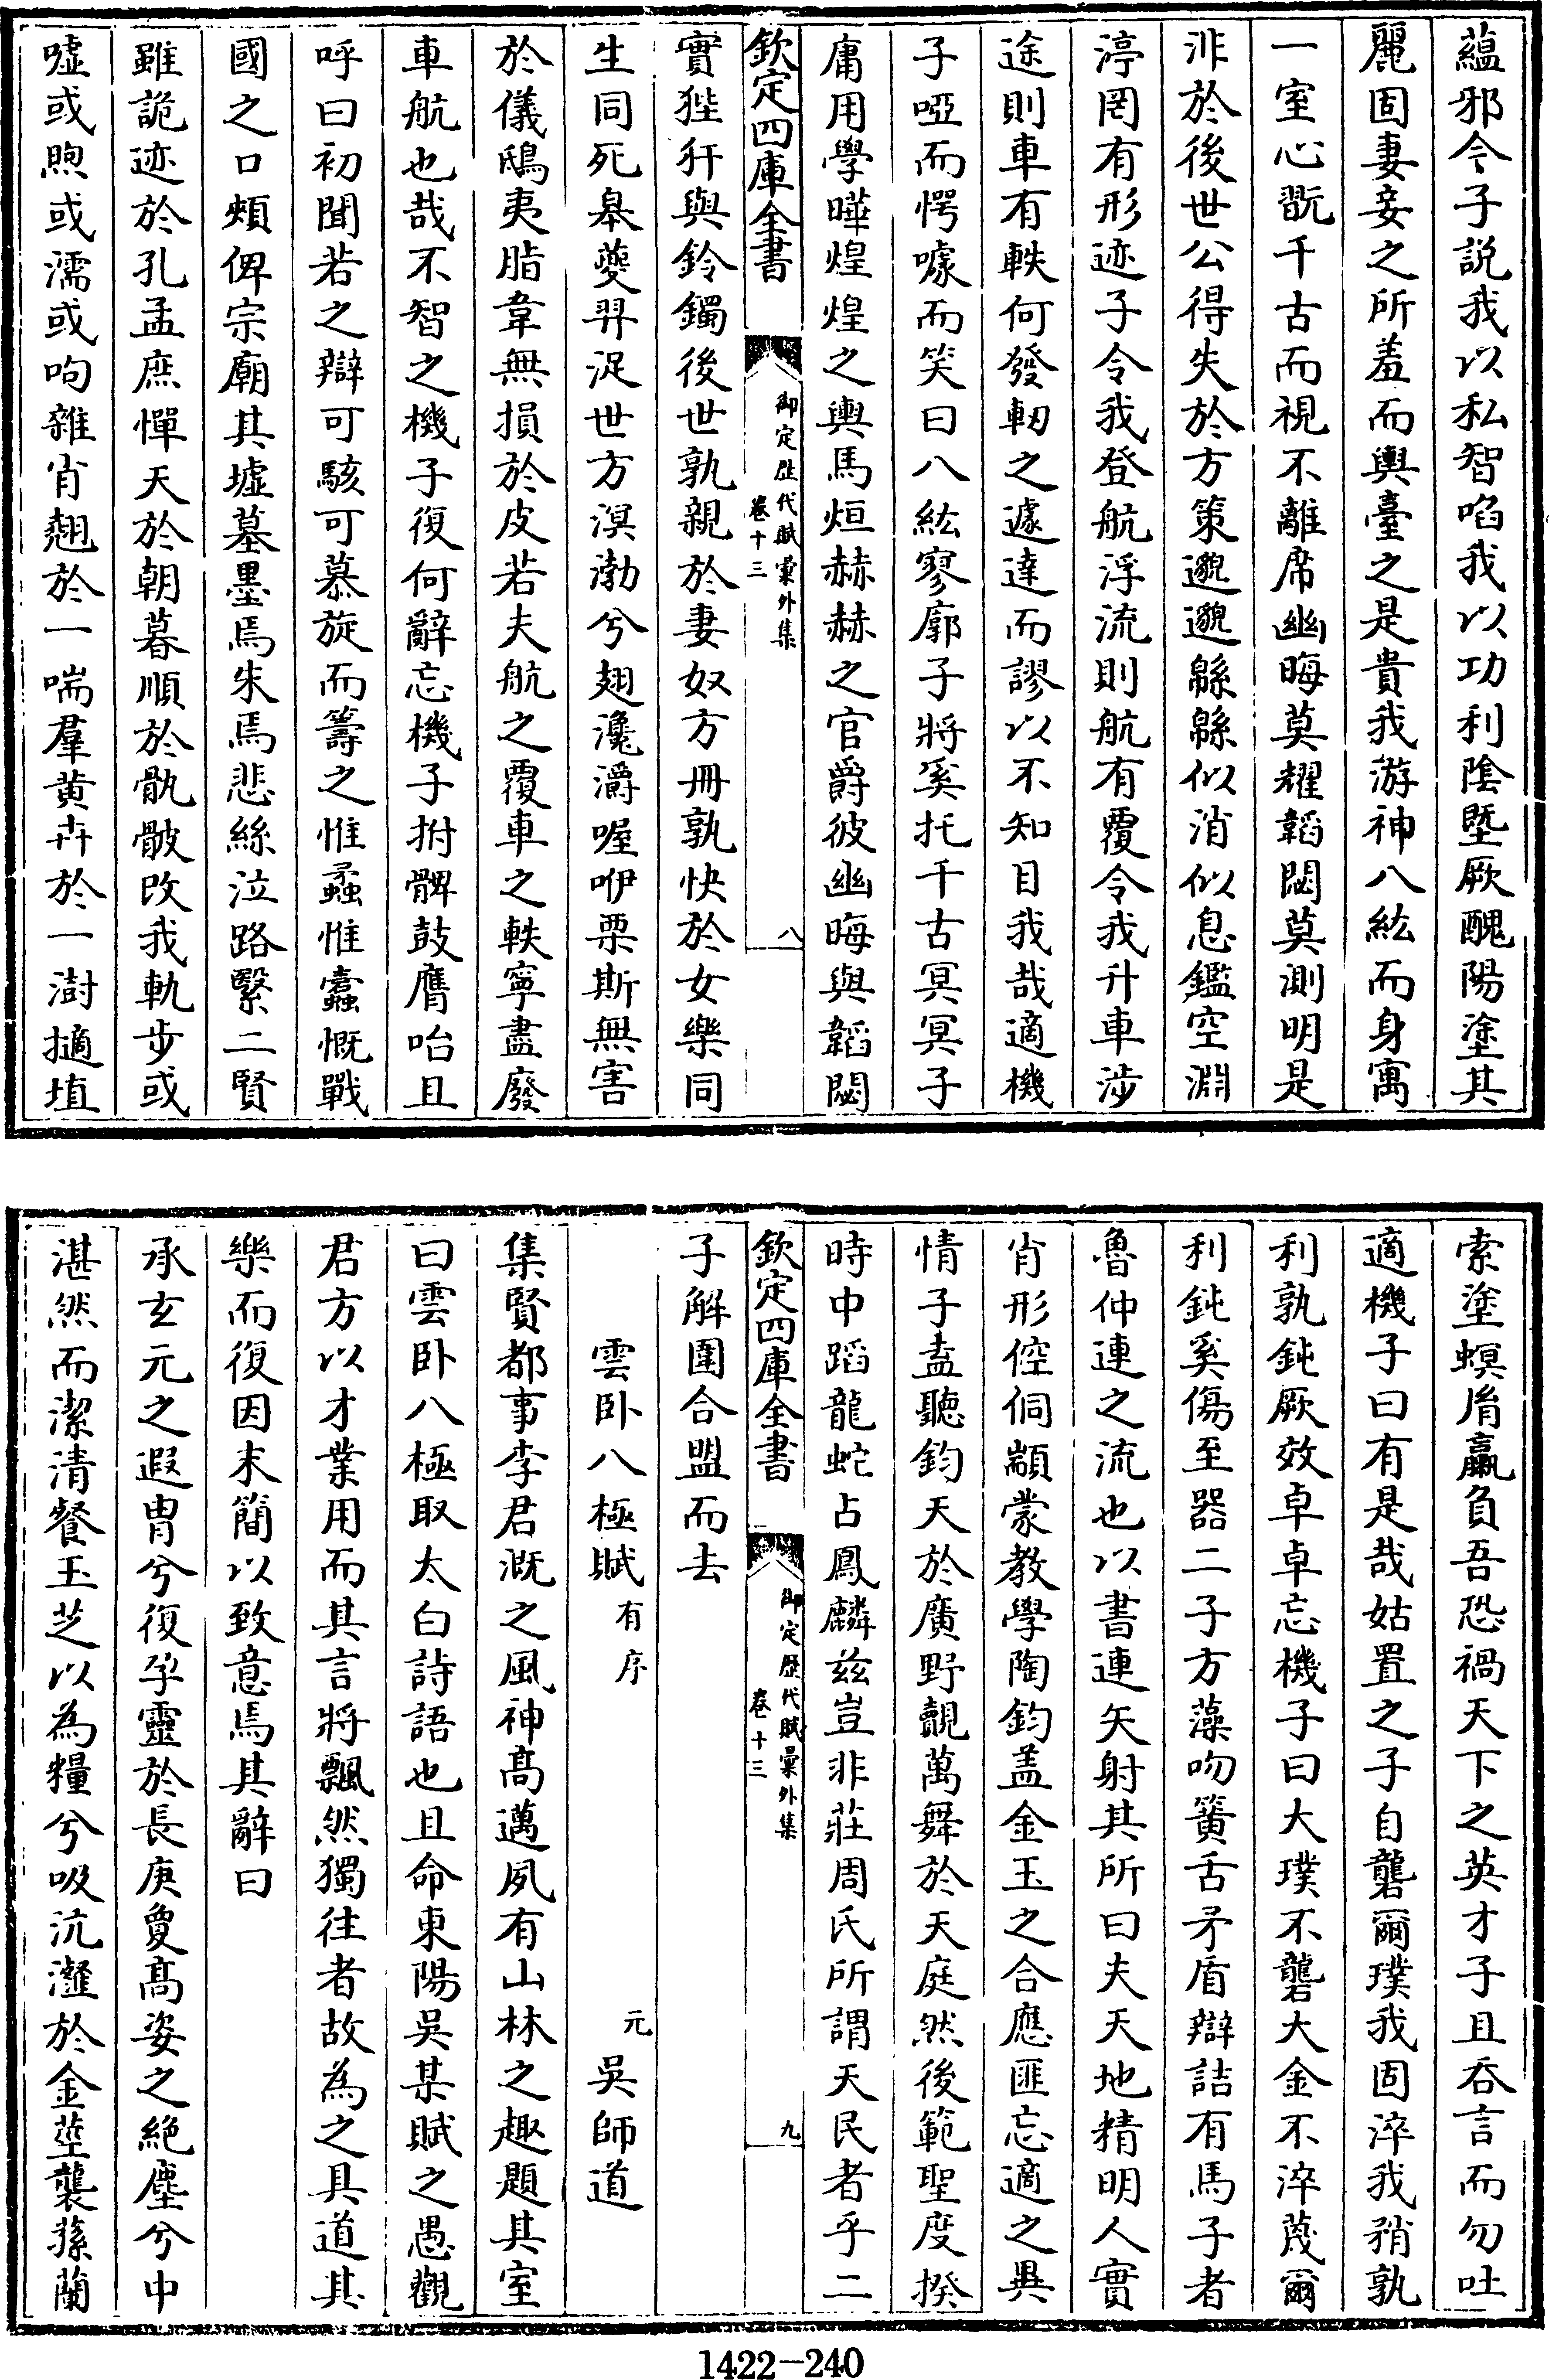 蘊邪今子説我以私智啗我以功利陰塈厥醜陽塗其
麗固妻妾之所羞而輿臺之是貴我游神八紘而身寓
一室心翫千古而視不離席幽晦莫耀韜閟莫測明是
泎於後世公得失於方策邈邈緜緜似消似息鑑空淵
渟罔有形迹子令我登航浮流則航有覆令我升車涉
途則車有軼何發軔之遽達而謬以不知目我哉適機
子啞而愕噱而笑曰八紘寥廓子將奚托千古冥冥子
庸用學曄煌煌之輿馬烜赫赫之官爵彼幽晦與韜閟
欽定四庫全書
御定歴代賦彙外集
卷十三
八
實狴犴與鈴鐲後世孰親於妻奴方冊孰快於女樂同
生同死皋夔羿浞世方溟渤兮翅瀺灂喔咿栗斯無害
於儀鴟夷脂韋無損於皮若夫航之覆車之軼寧盡廢
車航也哉不智之機子復何辭忘機子拊髀鼓膺咍且
呼曰初聞若之辯可駭可慕旋而籌之惟蟊惟蠹慨戰
國之口頰俾宗廟其墟墓墨焉朱焉悲絲泣路繄二賢
雖詭迹於孔孟庶憚天於朝暮順於骫骳改我軌步或
噓或煦或濡或呴雜肖翹於一喘羣黄卉於一澍擿埴
索塗螟脜蠃負吾恐禍天下之英才子且呑言而勿吐
適機子曰有是哉姑置之子自礱爾璞我固淬我矟孰
利孰鈍厥效卓卓忘機子曰大璞不礱大金不淬蔑爾
利鈍奚傷至器二子方藻吻簧舌矛盾辯詰有馬子者
魯仲連之流也以書連矢射其所曰夫天地精明人實
肖形倥侗顓蒙教學陶鈞盖金玉之合應匪忘適之異
情子盍聽鈞天於廣野覿萬舞於天庭然後範聖度揆
時中蹈龍蛇占鳳麟兹豈非莊周氏所謂天民者乎二
欽定四庫全書
御定歴代賦彙外集
卷十三
九
子解圍合盟而去
雲卧八極賦有序　元吳師道
集賢都事李君溉之風神髙邁夙有山林之趣題其室
曰雲卧八極取太白詩語也且命東陽吳某賦之愚觀
君方以才業用而其言將飄然獨往者故為之具道其
樂而復因末簡以致意焉其辭曰
承玄元之遐胄兮復孕靈於長庚夐髙姿之絶塵兮中
湛然而潔清餐玉芝以為糧兮吸沆瀣於金莖襲蓀蘭
1422-240